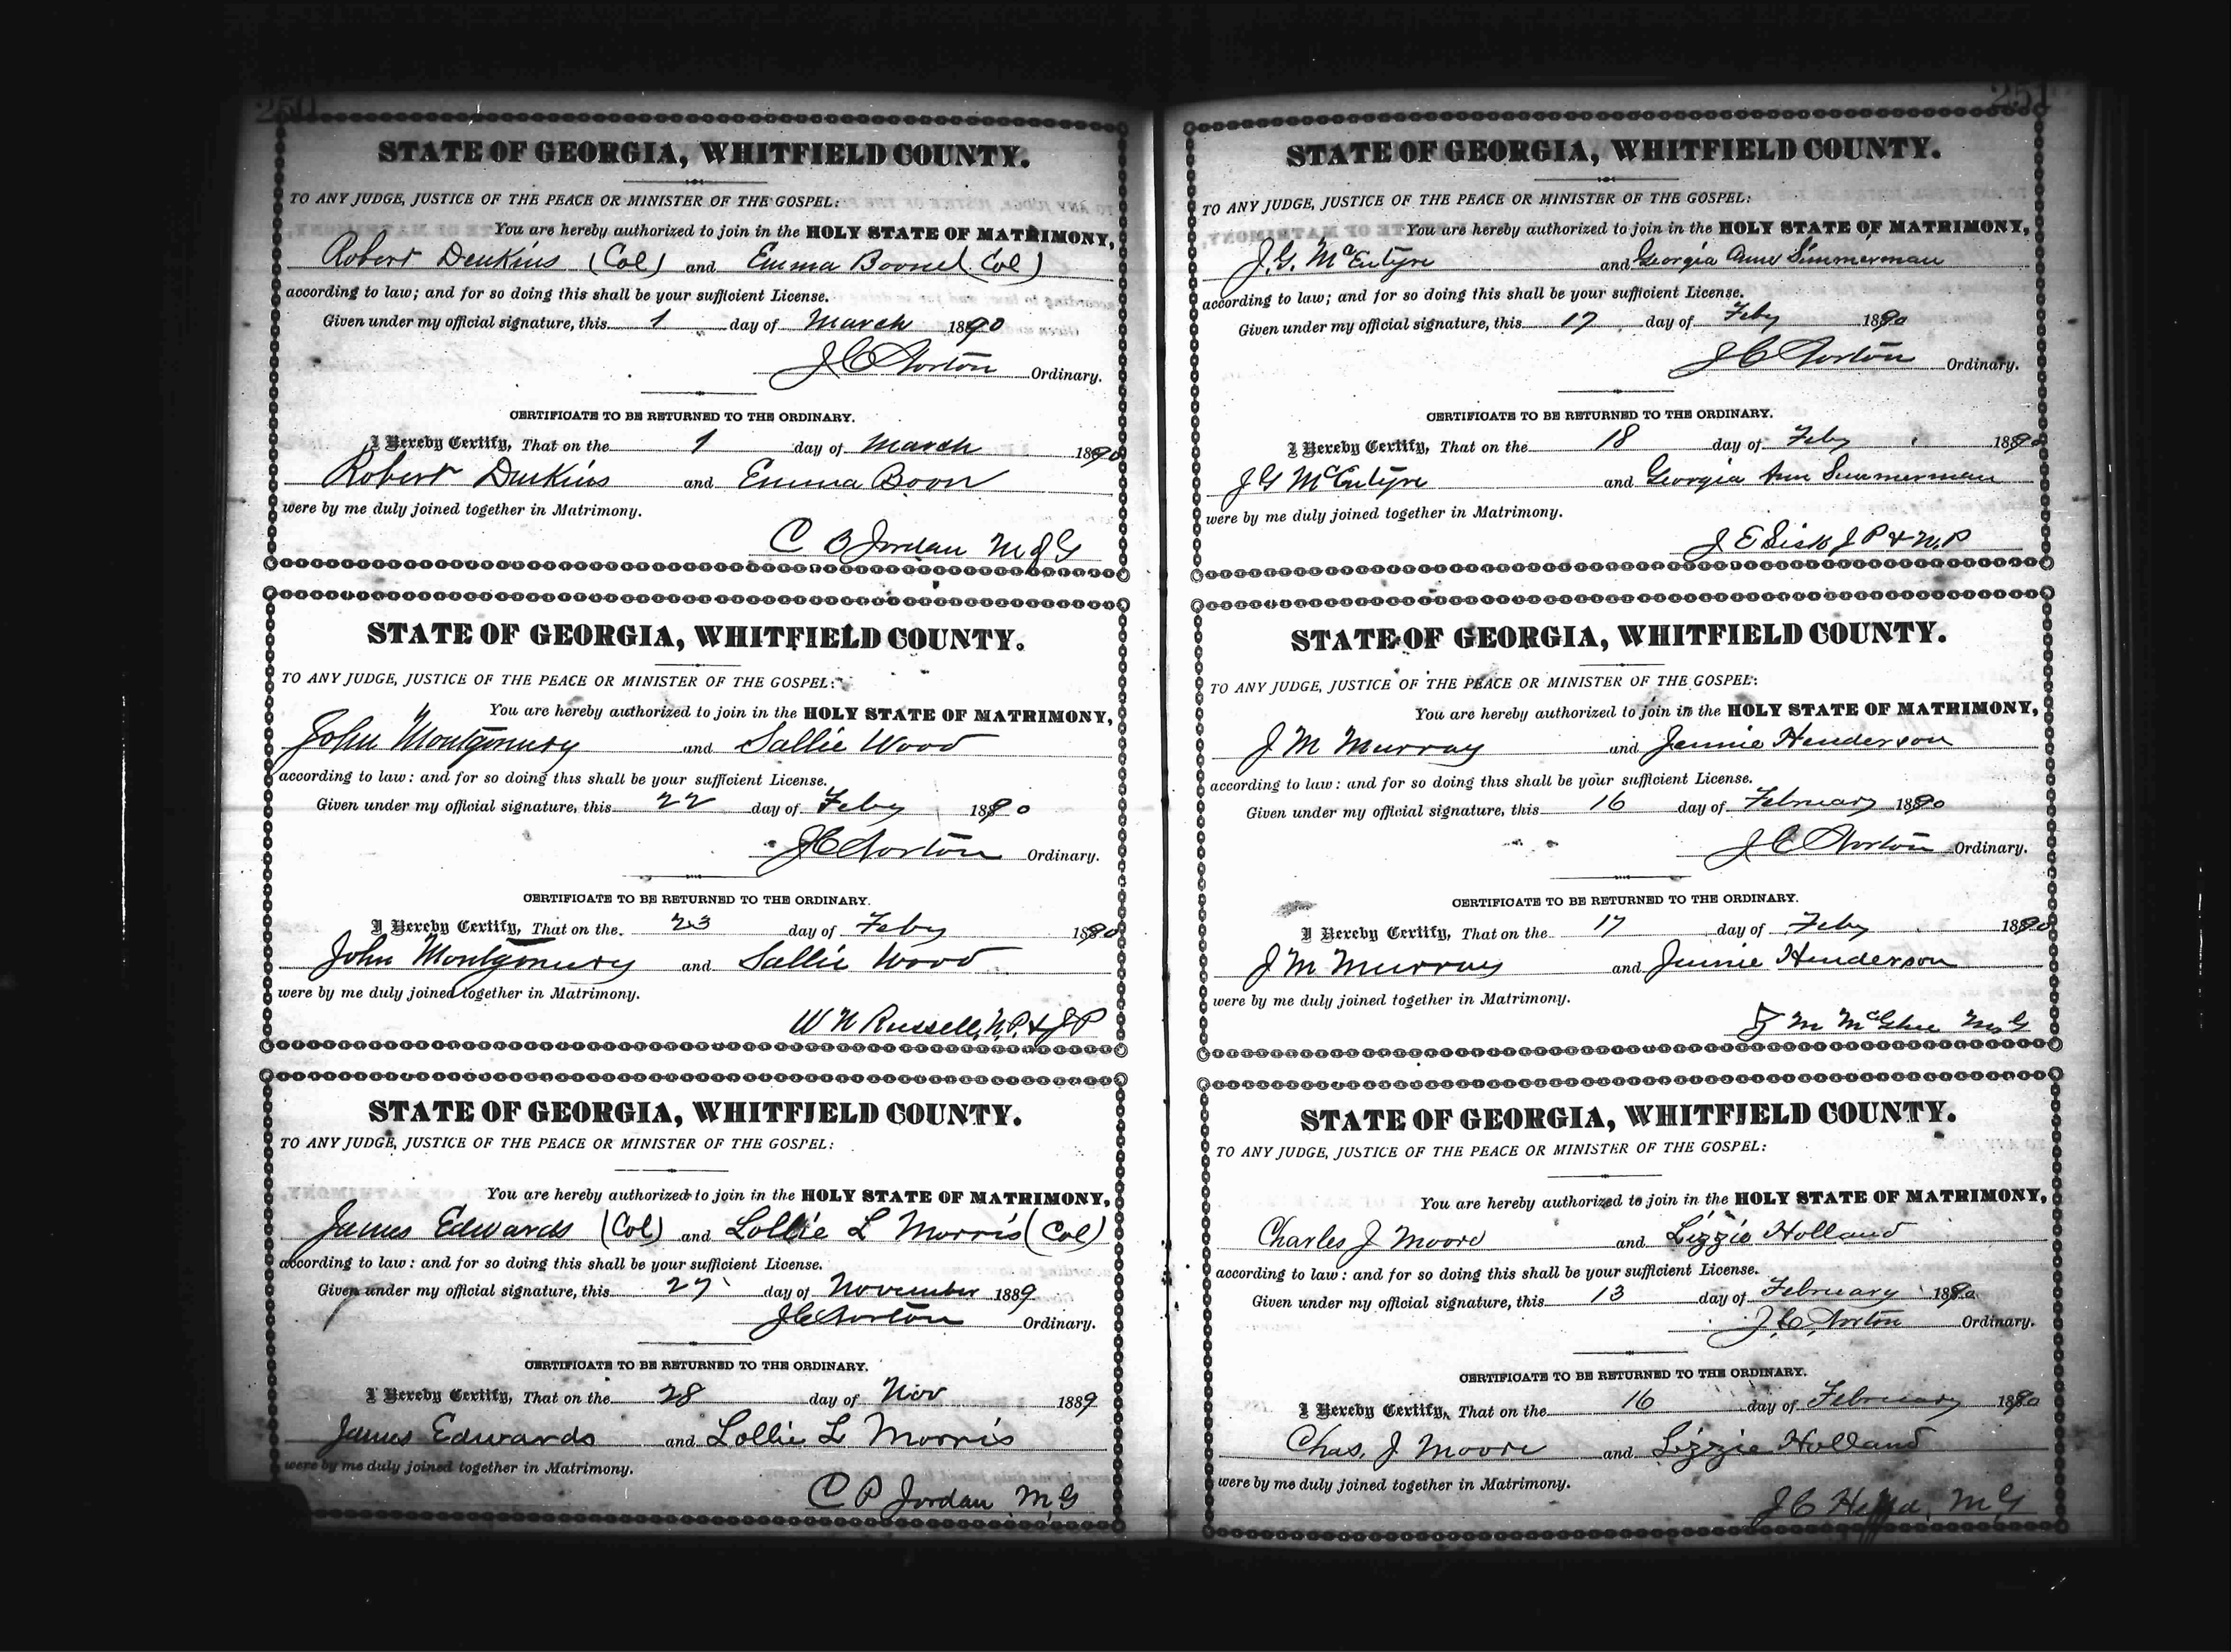 250
STATE OF GEORGIA, WHITFIELD COUNTY.
TO ANY JUDGE, JUSTICE OF THE PEACE OR MINISTER OF THE GOSPEL:
You are hereby authorized to join in the HOLY STATE OF MATRIMONY,
Robert Deukins (Col) and Emma Boone (Col)
according to law; and for so doing this shall be your sufficient License.
Given under my official signature, this 1 day of March 1890
J C Norton Ordinary.
CERTIFICATE TO BE RETURNED TO THE ORDINARY.
I Hereby Certify, That on the 1 day of March 1890
Robert Deukins and Emma Boon
were by me duly joined together in Matrimony.
C B Jordan M of G
STATE OF GEORGIA, WHITFIELD COUNTY.
TO ANY JUDGE, JUSTICE OF THE PEACE OR MINISTER OF THE GOSPEL:
You are hereby authorized to join in the HOLY STATE OF MATRIMONY,
John Montgomery and Sallie Wood
according to law: and for so doing this shall be your sufficient License.
Given under my official signature, this 22 day of Feby 1890
J C Norton Ordinary.
CERTIFICATE TO BE RETURNED TO THE ORDINARY.
I Hereby Certify, That on the 23 day of Feby 1890
John Montgomery and Sallie Wood
were by me duly joined together in Matrimony.
W N Russell, N.P. & J P
STATE OF GEORGIA, WHITFIELD COUNTY.
TO ANY JUDGE, JUSTICE OF THE PEACE OR MINISTER OF THE GOSPEL:
You are hereby authorized to join in the HOLY STATE OF MATRIMONY,
James Edwards (Col) and Lollie L Morris (Col)
according to law: and for so doing this shall be your sufficient License.
Given under my official signature, this 27 day of November 1889
J C Norton Ordinary.
CERTIFICATE TO BE RETURNED TO THE ORDINARY.
I Hereby Certify, That on the 28 day of Nov 1889
James Edwards and Lollie L Morris
were by me duly joined together in Matrimony.
C P Jordan M,G
251
STATE OF GEORGIA, WHITFIELD COUNTY.
TO ANY JUDGE, JUSTICE OF THE PEACE OR MINISTER OF THE GOSPEL:
You are hereby authorized to join in the HOLY STATE OF MATRIMONY,
J. G. McEntyre and Georgia Ann Simmerman
according to law; and for so doing this shall be your sufficient License.
Given under my official signature, this 17 day of Feby 1890
J C Norton Ordinary.
CERTIFICATE TO BE RETURNED TO THE ORDINARY.
I Hereby Certify, That on the 18 day of Feby 1890
J G McEntyre and Georgia Ann Simmerman
were by me duly joined together in Matrimony.
J E Sisk J P & N.P
STATE OF GEORGIA, WHITFIELD COUNTY.
TO ANY JUDGE, JUSTICE OF THE PEACE OR MINISTER OF THE GOSPEL:
You are hereby authorized to join in the HOLY STATE OF MATRIMONY,
J M Murray and Jennie Henderson
according to law: and for so doing this shall be your sufficient License.
Given under my official signature, this 16 day of February 1890
J C Norton Ordinary.
CERTIFICATE TO BE RETURNED TO THE ORDINARY.
I Hereby Certify, That on the 17 day of Feby 1890
J M Murray and Jennie Henderson
were by me duly joined together in Matrimony.
M McGhee M,G
STATE OF GEORGIA, WHITFIELD COUNTY.
TO ANY JUDGE, JUSTICE OF THE PEACE OR MINISTER OF THE GOSPEL:
You are hereby authorized to join in the HOLY STATE OF MATRIMONY,
Charles J Moore and Lizzie Holland
according to law: and for so doing this shall be your sufficient License.
Given under my official signature, this 13 day of February 1890
J. C. Norton Ordinary.
CERTIFICATE TO BE RETURNED TO THE ORDINARY.
I Hereby Certify, That on the 16 day of February 1890
Chas. J Moore and Lizzie Holland
were by me duly joined together in Matrimony.
J C M G